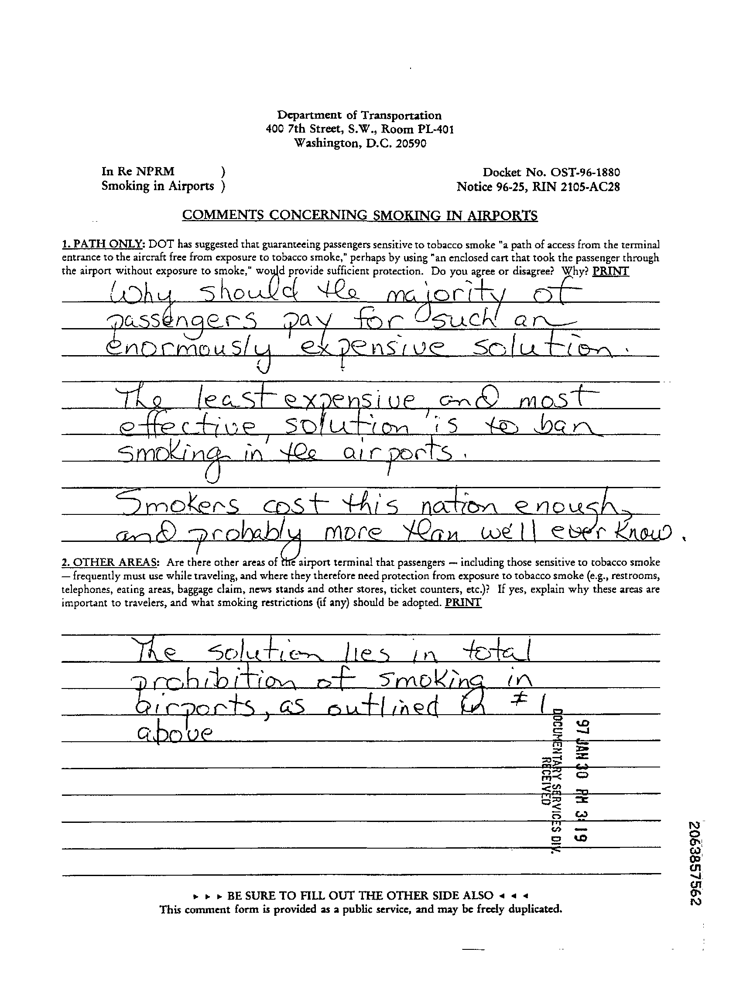 Department of Transportation
400 7th Street, S.W., Room PL-401
Washington, D.C. 20590
In Re NPRM )
Smoking in Airports )
Docket No. OST-96-1880
Notice 96-25, RIN 2105-AC28
COMMENTS CONCERNING SMOKING IN AIRPORTS
1. PATH ONLY: DOT has suggested that guaranteeing passengers sensitive to tobacco smoke "a path of access from the terminal
entrance to the aircraft free from exposure to tobacco smoke," perhaps by using "an enclosed cart that took the passenger through
the airport without exposure to smoke," would provide sufficient protection. Do you agree or disagree? Why? PRINT
Why should the majority of
passengers pay for such an
enormously expensive solution.
The least expensive, and most
effective, solution is to ban
smoking in the airports.
Smokers cost this nation enough,
and probably more than we'll ever know.
2. OTHER AREAS: Are there other areas of the airport terminal that passengers — including those sensitive to tobacco smoke
— frequently must use while traveling, and where they therefore need protection from exposure to tobacco smoke (e.g., restrooms,
telephones, eating areas, baggage claim, news stands and other stores, ticket counters, etc.)? If yes, explain why these areas are
important to travelers, and what smoking restrictions (if any) should be adopted. PRINT
The solution lies in total
prohibition of smoking in
airports, as outlined in # 1
above
97 JAN 30 PM 3:19
DOCUMENTARY SERVICES DIV.
RECEIVED
2063857562
▸ ▸ ▸ BE SURE TO FILL OUT THE OTHER SIDE ALSO ◂ ◂ ◂
This comment form is provided as a public service, and may be freely duplicated.